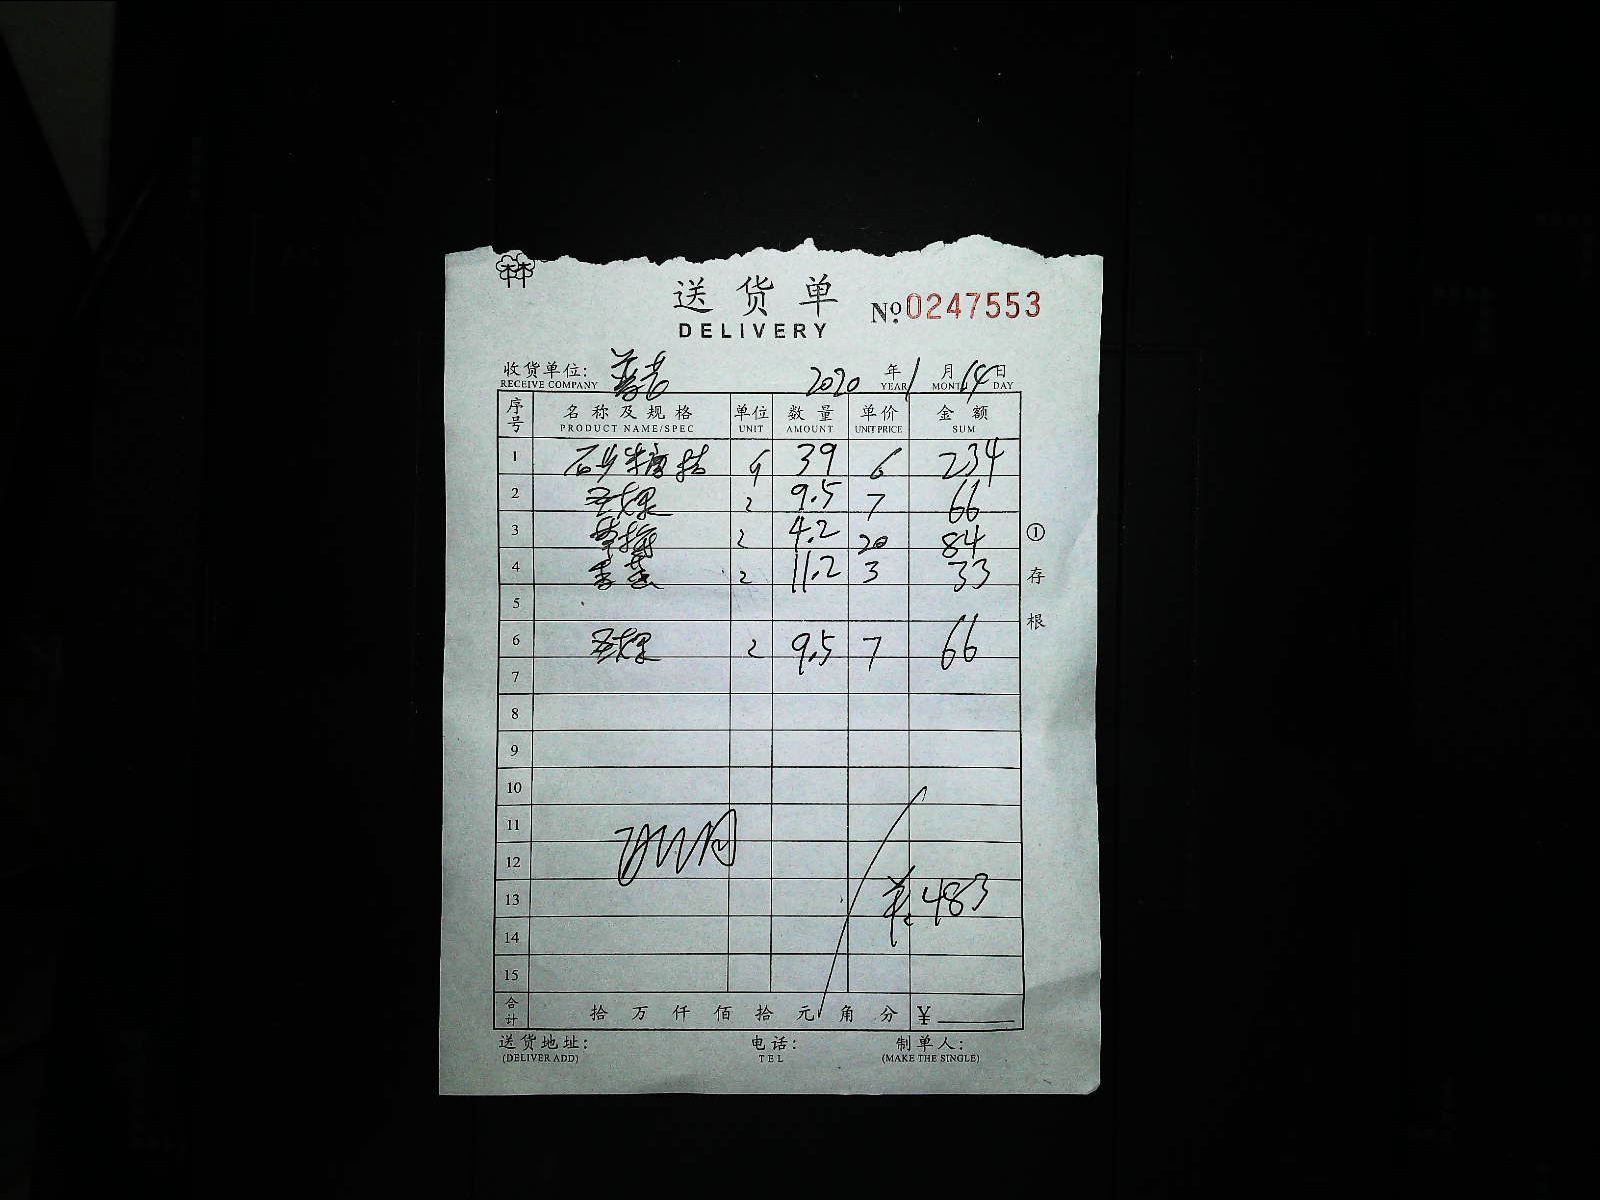 林
送货单
DELIVERY
№ 0247553
收货单位: 2020 年 1 月 14 日
RECEIVE COMPANY YEAR MONTH DAY
序号 名称及规格 单位 数量 单价 金额
PRODUCT NAME/SPEC UNIT AMOUNT UNIT PRICE SUM
1 砂糖桔 39 6 234
2 2 9.5 7 66
3 草莓 2 4.2 20 84
4 香蕉 2 11.2 3 33
5
6 2 9.5 7 66
7
8
9
10
11
12
13 483
14
15
合计 拾 万 仟 佰 拾 元 角 分 ¥
送货地址: 电话: 制单人:
(DELIVER ADD) TEL (MAKE THE SINGLE)
① 存根